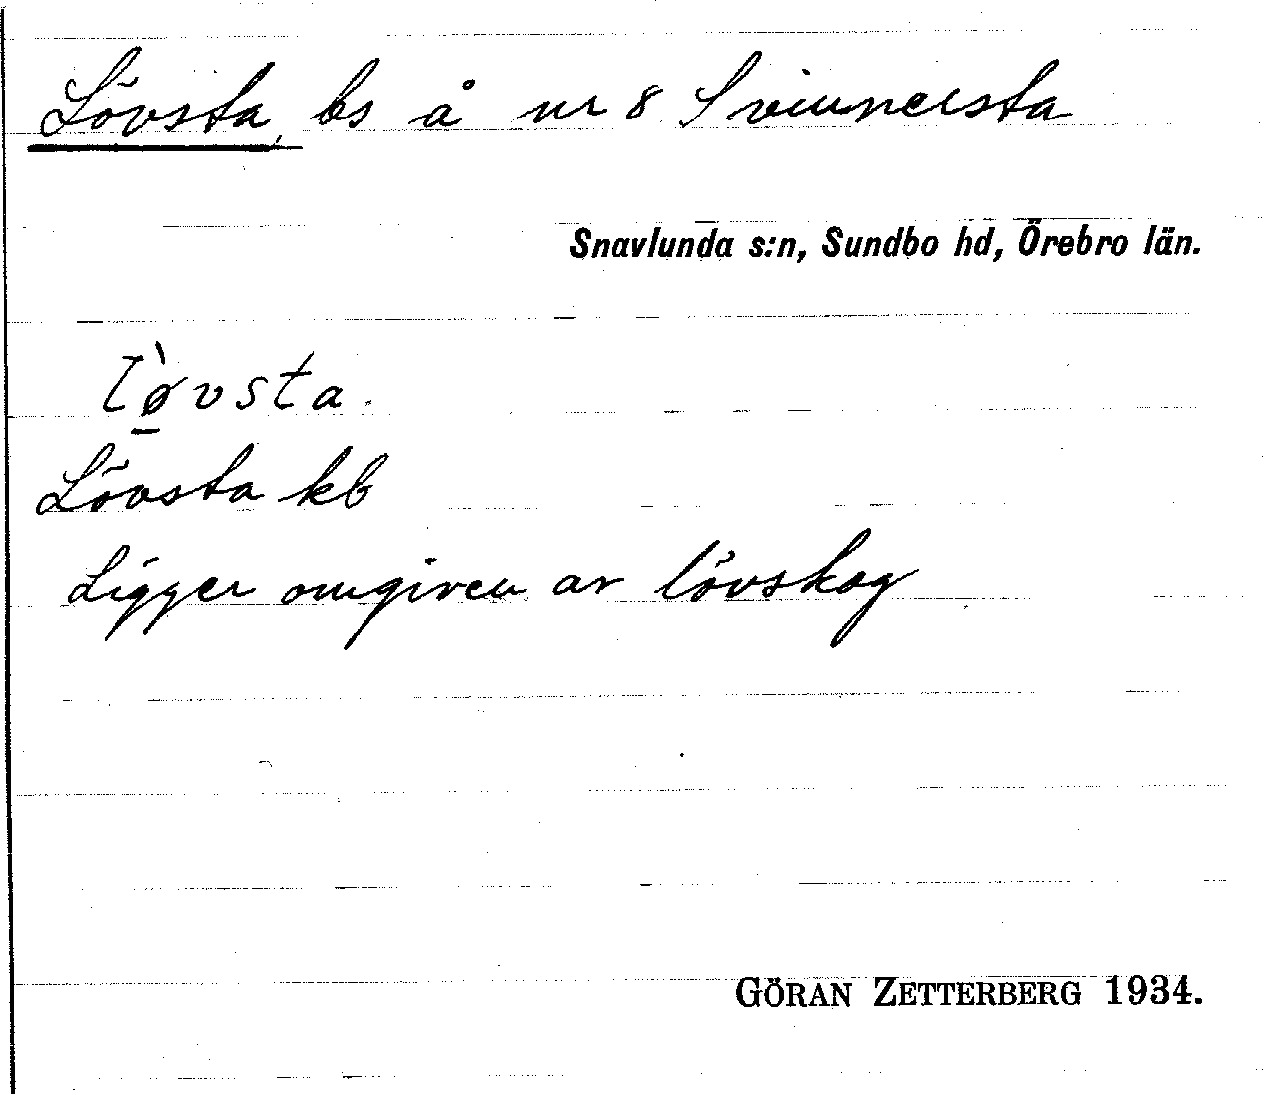 Lövsta, bs å nr 8 Svinnersta
Snavlunda s:n, Sundbo hd, Örebro län.
lø̀vsta.
Lövsta kb
Ligger omgiven av lövskog
GÖRAN ZETTERBERG 1934.